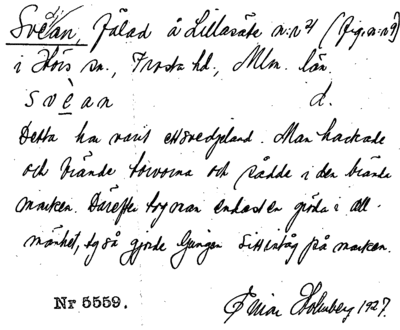 Svean, Fälad å Lillasäte n:r 4 (fig. n:r 9)
i Hörs sn., Frosta hd., Mlm. län.
svèan d.
Detta har varit ett svedjeland. Man hackade
och brände torvorna och sådde i den brände
marken. Därefter tog man endast en gröda i all-
mänhet, ty så gjorde ljungen sitt intåg på marken.
Nr 5559.
Einar Holmberg 1927.